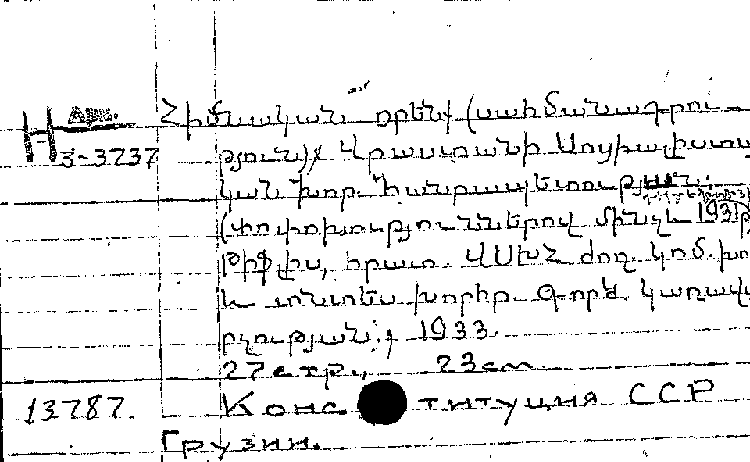 Հիմնական օրենք (սահմանադրու-
H Арм.
3-3737
թյուն) Վրաստանի Սոցիալիստա
կան Խոր. Հանրապետության:
(փոփոխություններով մինչև 1931թ
Թիֆլիս, հրատ. ՎՍԽՀ ժող. կոմ. խո
և տնտես խորհր. Գործ. կառավ
րչության, 1933.
27 стр., 23 см
13787. Конституция ССР
Грузии.